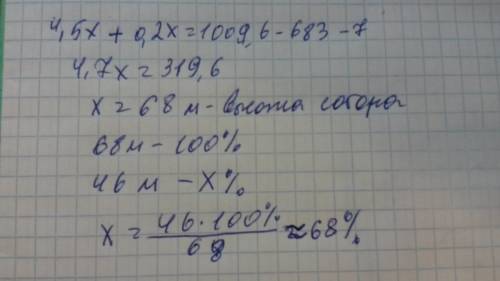 4,5x + 0,2x = 1009,6 - 683 - 7
4,7x = 319,6
x = 68 м - высота собора
68 м - 100%
46 м - x%
x = \frac{46 \cdot 100\%}{68} ≈ 68%